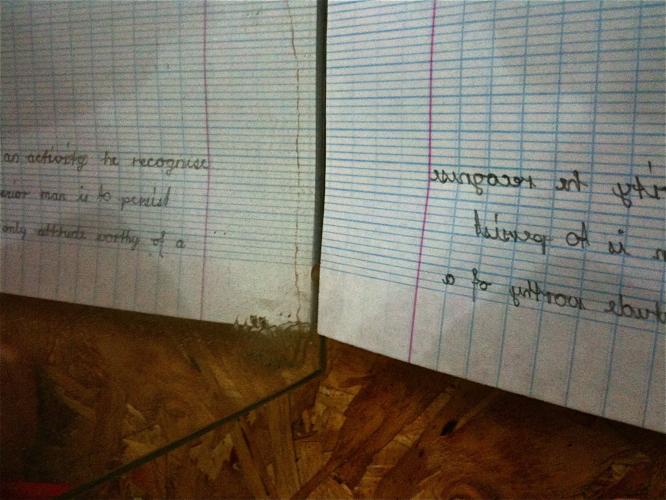 an activity he recognise
man is to persist
only attitude worthy of a
ity he recognise
is to persist
worthy of a